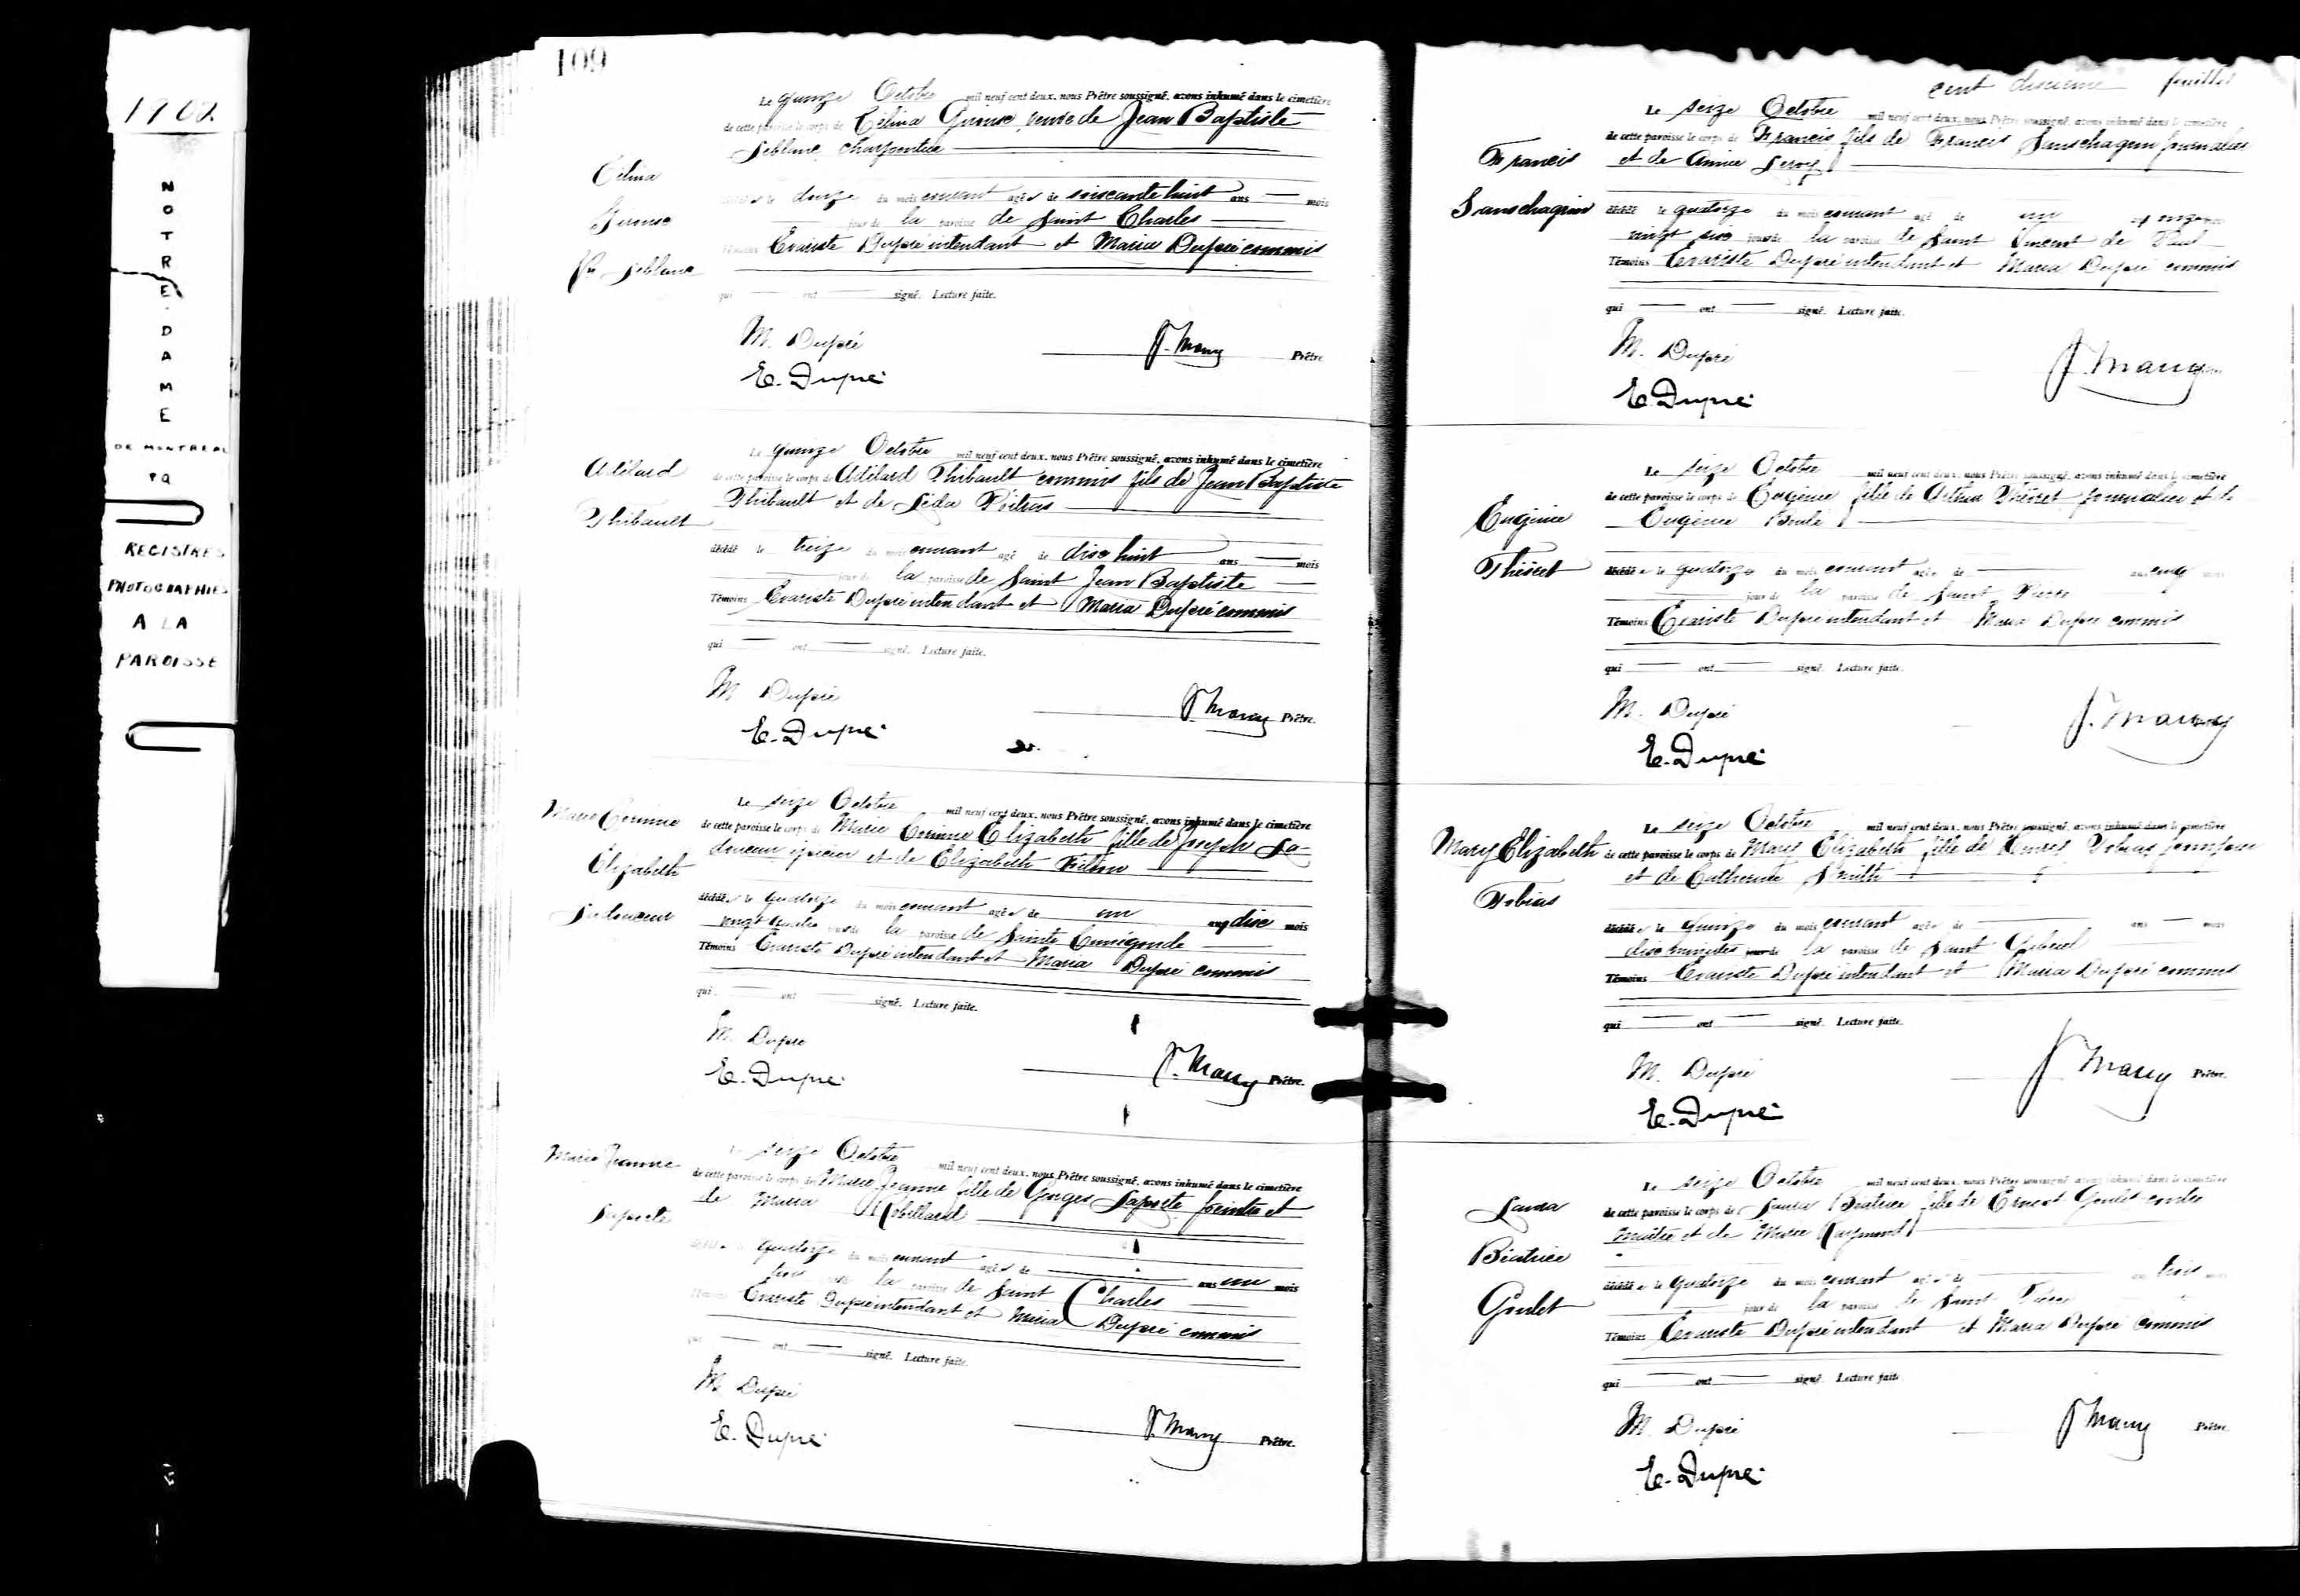 1902.
NOTRE-DAME
DE MONTREAL
PQ
REGISTRES
PHOTOGRAPHIES
A LA
PAROISSE
109
Le quinze Octobre mil neuf cent deux, nous Prêtre soussigné, avons inhumé dans le cimetière
de cette paroisse le corps de Célina veuve de Jean Baptiste
Leblanc charpentier
Célina
Ve Leblanc
le douze du mois courant agée de soixante huit ans mois
jour de la paroisse de Saint Charles
Témoins Evariste Dupré intendant et Maria Dupré commis
qui ont signé. Lecture faite.
M. Dupré
Prêtre
E. Dupré
Adélard
Thibault
Le quinze Octobre mil neuf cent deux, nous Prêtre soussigné, avons inhumé dans le cimetière
de cette paroisse le corps de Adélard Thibault commis fils de Jean Baptiste
Thibault et de Léda Poitras
décédé le treize du mois courant agé de dix huit ans mois
jour de la paroisse de Saint Jean Baptiste
Témoins Evariste Dupré intendant et Maria Dupré commis
qui ont signé. Lecture faite.
M Dupré
Prêtre.
E. Dupré
Marie Corinne
Elizabeth
Ladouceur
Le seize Octobre mil neuf cent deux, nous Prêtre soussigné, avons inhumé dans le cimetière
de cette paroisse le corps de Marie Corinne Elizabeth fille de Joseph La-
douceur épicier et de Elizabeth
décédée le quatorze du mois courant agée de un an dix mois
vingt quatre jours de la paroisse de Sainte Cunégonde
Témoins Evariste Dupré intendant et Maria Dupré commis
qui ont signé. Lecture faite.
M. Dupré
Prêtre.
E. Dupré
Marie Jeanne
Laporte
Le seize Octobre mil neuf cent deux, nous Prêtre soussigné, avons inhumé dans le cimetière
de cette paroisse le corps de Marie Jeanne fille de Georges Laporte peintre et
de Maria Robillard
le quatorze du mois courant agée de ans un mois
la paroisse de Saint Charles
Témoins Evariste Dupré intendant et Maria Dupré commis
qui ont signé. Lecture faite.
M. Dupré
Prêtre.
E. Dupré
cent feuillet
Le seize Octobre mil neuf cent deux, nous Prêtre soussigné, avons inhumé dans le cimetière
de cette paroisse le corps de Francis fils de Francis Sanschagrin journalier
et de Annie Leroy
Francis
Sanschagrin
décédé le quatorze du mois courant agé de un an onze mois
vingt six jours de la paroisse de Saint Vincent de Paul
Témoins Evariste Dupré intendant et Maria Dupré commis
qui ont signé. Lecture faite.
M. Dupré
E. Dupré
Le seize Octobre mil neuf cent deux, nous Prêtre soussigné, avons inhumé dans le cimetière
de cette paroisse le corps de Eugénie fille de journalier et de
Eugénie
Eugénie
décédée le quatorze du mois courant agée de ans cinq mois
jour de la paroisse de Saint Pierre
Témoins Evariste Dupré intendant et Maria Dupré commis
qui ont signé. Lecture faite.
M. Dupré
E. Dupré
Mary Elizabeth
Tobias
Le seize Octobre mil neuf cent deux, nous Prêtre soussigné, avons inhumé dans le cimetière
de cette paroisse le corps de Mary Elizabeth fille de Tobias
et de Catherine Smith
décédée le quinze du mois courant agée de ans mois
dix minutes jour de la paroisse de Saint Gabriel
Témoins Evariste Dupré intendant et Maria Dupré commis
qui ont signé. Lecture faite.
M. Dupré
Prêtre.
E. Dupré
Laura
Béatrice
Goulet
Le seize Octobre mil neuf cent deux, nous Prêtre soussigné, avons inhumé dans le cimetière
de cette paroisse le corps de Laura Béatrice fille de Ernest Goulet contre
maître et de Marie Raymond
décédée le quatorze du mois courant agée de ans trois mois
jour de la paroisse de Saint
Témoins Evariste Dupré intendant et Maria Dupré commis
qui ont signé. Lecture faite.
M. Dupré
Prêtre.
E. Dupré